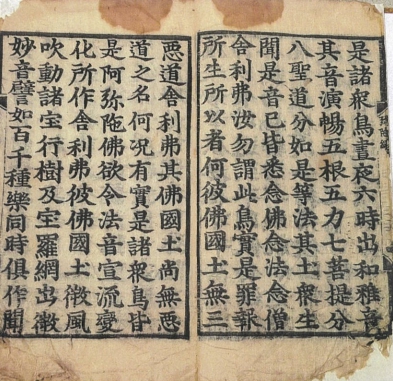 是諸衆鳥晝夜六時出和雅音
其音演暢五根五力七菩提分
八聖道分如是等法其土衆生
聞是音已皆悉念佛念法念僧
舍利弗汝勿謂此鳥實是罪報
所生所以者何彼佛國土無三
悪道舍利弗其佛國土尚無悪
道之名何况有實是諸衆鳥皆
是阿弥陁佛欲令法音宣流變
化所作舍利弗彼佛國土微風
吹動諸宝行樹及宝羅網出微
妙音譬如百千種樂同時俱作聞